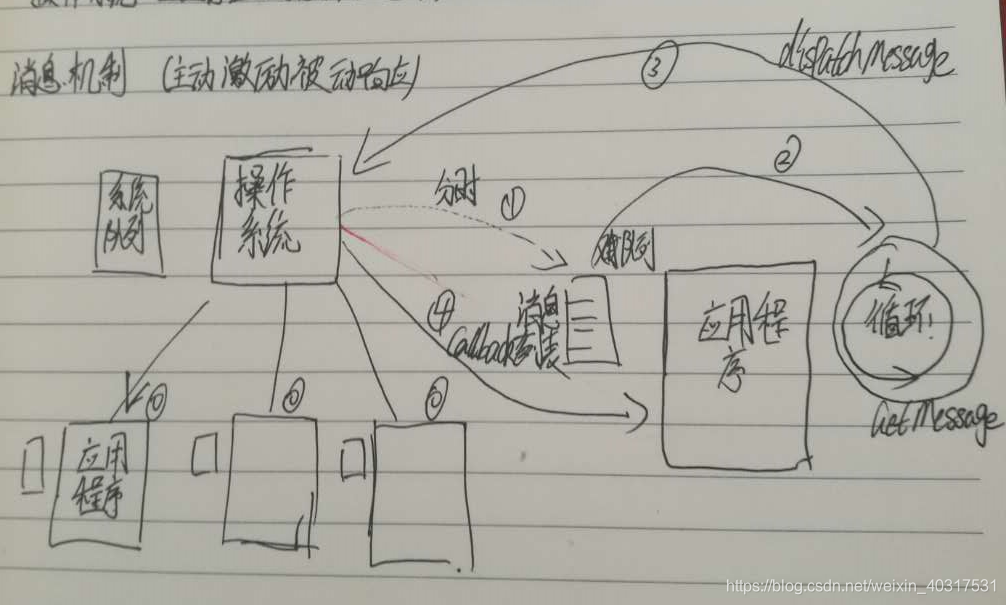 消息机制 (主动激励被动响应)
dispatchMessage
③
②
系统
队列
操作
系统
分时 ①
队列
消息
④
Callback
应用程
序
循环
GetMessage
①
①
①
应用
程序
https://blog.csdn.net/weixin_40317531